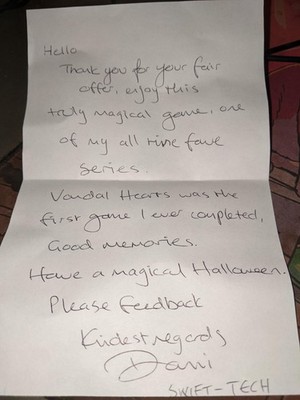 Hello
Thank you for your fair
offer, enjoy this
truly magical game, one
of my all time fave
series.
Vandal Hearts was the
first game I ever completed,
Good memories.
Have a magical Halloween.
Please feedback
Kindest regards
Dani
SWIFT-TECH